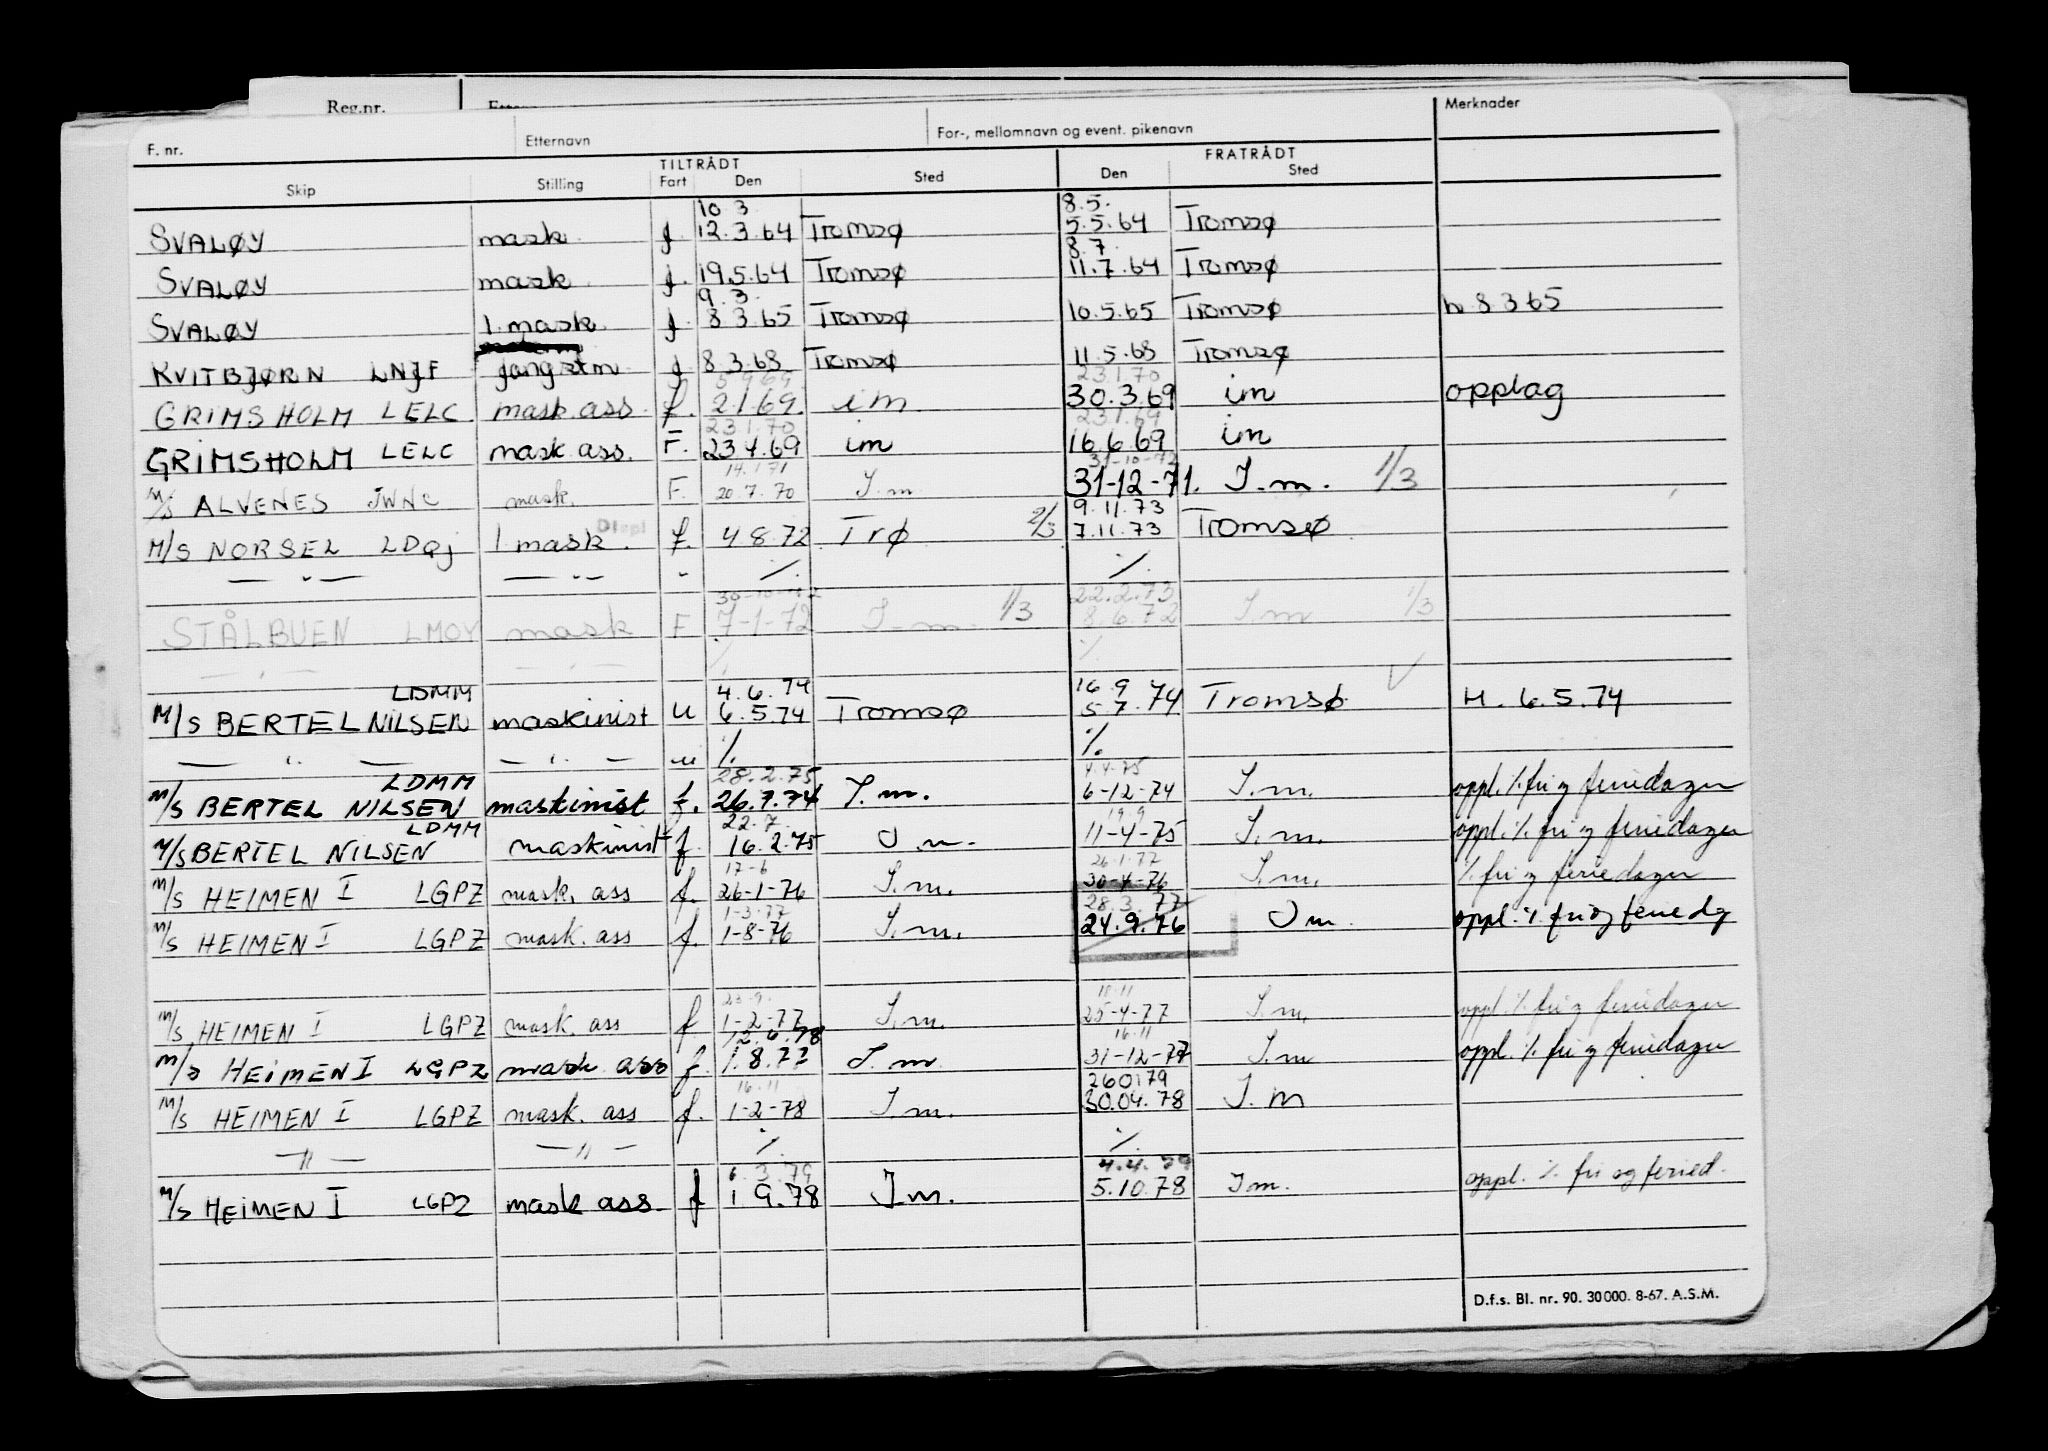 Reg.nr.
F. nr. Etternavn For-, mellomnavn og event. pikenavn Merknader
TILTRÅDT FRATRÅDT
Skip Stilling Fart Den Sted Den Sted
10 3 8.5.
SVALØY mask f. 12.3.64 Tromsø 5.5.64 Tromsø
8.7.
SVALØY mask f. 19.5.64 Tromsø 11.7.64 Tromsø
9.3.
SVALØY 1. mask f. 8 3.65 Tromsø 10.5.65 Tromsø h 8 3 65
KVITBJØRN LNJF fangstm f 8 3.68 Tromsø 11.5.68 Tromsø
5 9 69 23.1.70
GRIMSHOLM LELC mask. ass. f. 2.1.69. im 30.3.69 im opplag
23 1.70 23.1.69
GRIMSHOLM LELC mask ass. F. 23 4.69 im 16.6.69 im
14.1 71 31-10-72
M/S ALVENES JWNC mask. F. 20.7.70 I.m. 31-12-71. I.m. 1/3
9.11.73
M/S NORSEL LDQJ 1 mask. f. 4 8.72 Trø 2/3 7.11.73 Tromsø
— " — — " — " %. %.
30-10-72 22.2.73
STÅLBUEN LMOY mask F 7-1-72 I-m. 1/3 8.6.72 I.m 1/3
— " — — " — % %
LDMM 4.6.74 16.9
M/S BERTEL NILSEN maskinist u 6.5.74 Tromsø 5 7.74 Tromsø. H. 6.5.74
— " — — " — " %. %.
LDMM 28.2.75 4.4.75
M/S BERTEL NILSEN maskinist f. 26.7.74 I.m. 6-12-74 I.m. oppl. % fri og feriedager
LDMM 22.7. 19.9
M/S BERTEL NILSEN maskinist f. 16.2.75 I m. 11-4-75 I.m. oppl. % fri og feriedager
17-6 26.1.77
M/S HEIMEN I LGPZ mask. ass f. 26-1-76 I.m. 30-4-76 I.m. % fri og feriedager
1-3-77 28.3.77
M/S HEIMEN I LGPZ mask. ass f. 1-8-76 I.m. 24.9.76 I m. oppl. % fri og feriedg
23.9. 18.11
M/S HEIMEN I LGPZ mask. ass f 1-2-77 I.m. 25-4-77 I.m. oppl. % fri og feriedager
12.6.78 16.11
M/S HEIMEN I LGPZ mask ass f. 1.8.77 I.m. 31-12-77 I.m oppl. % fri og feriedager
16.11 260179
M/S HEIMEN I LGPZ mask. ass f. 1-2-78 I.m. 30.04.78 I.m
— " — — " — % %
3.79 4.4.79
M/S HEIMEN I LGPZ mask ass. f 1 9.78 I.m. 5.10.78 I m. oppl. % fri og feried.
D.f.s. Bl. nr. 90. 30 000. 8-67. A.S.M.